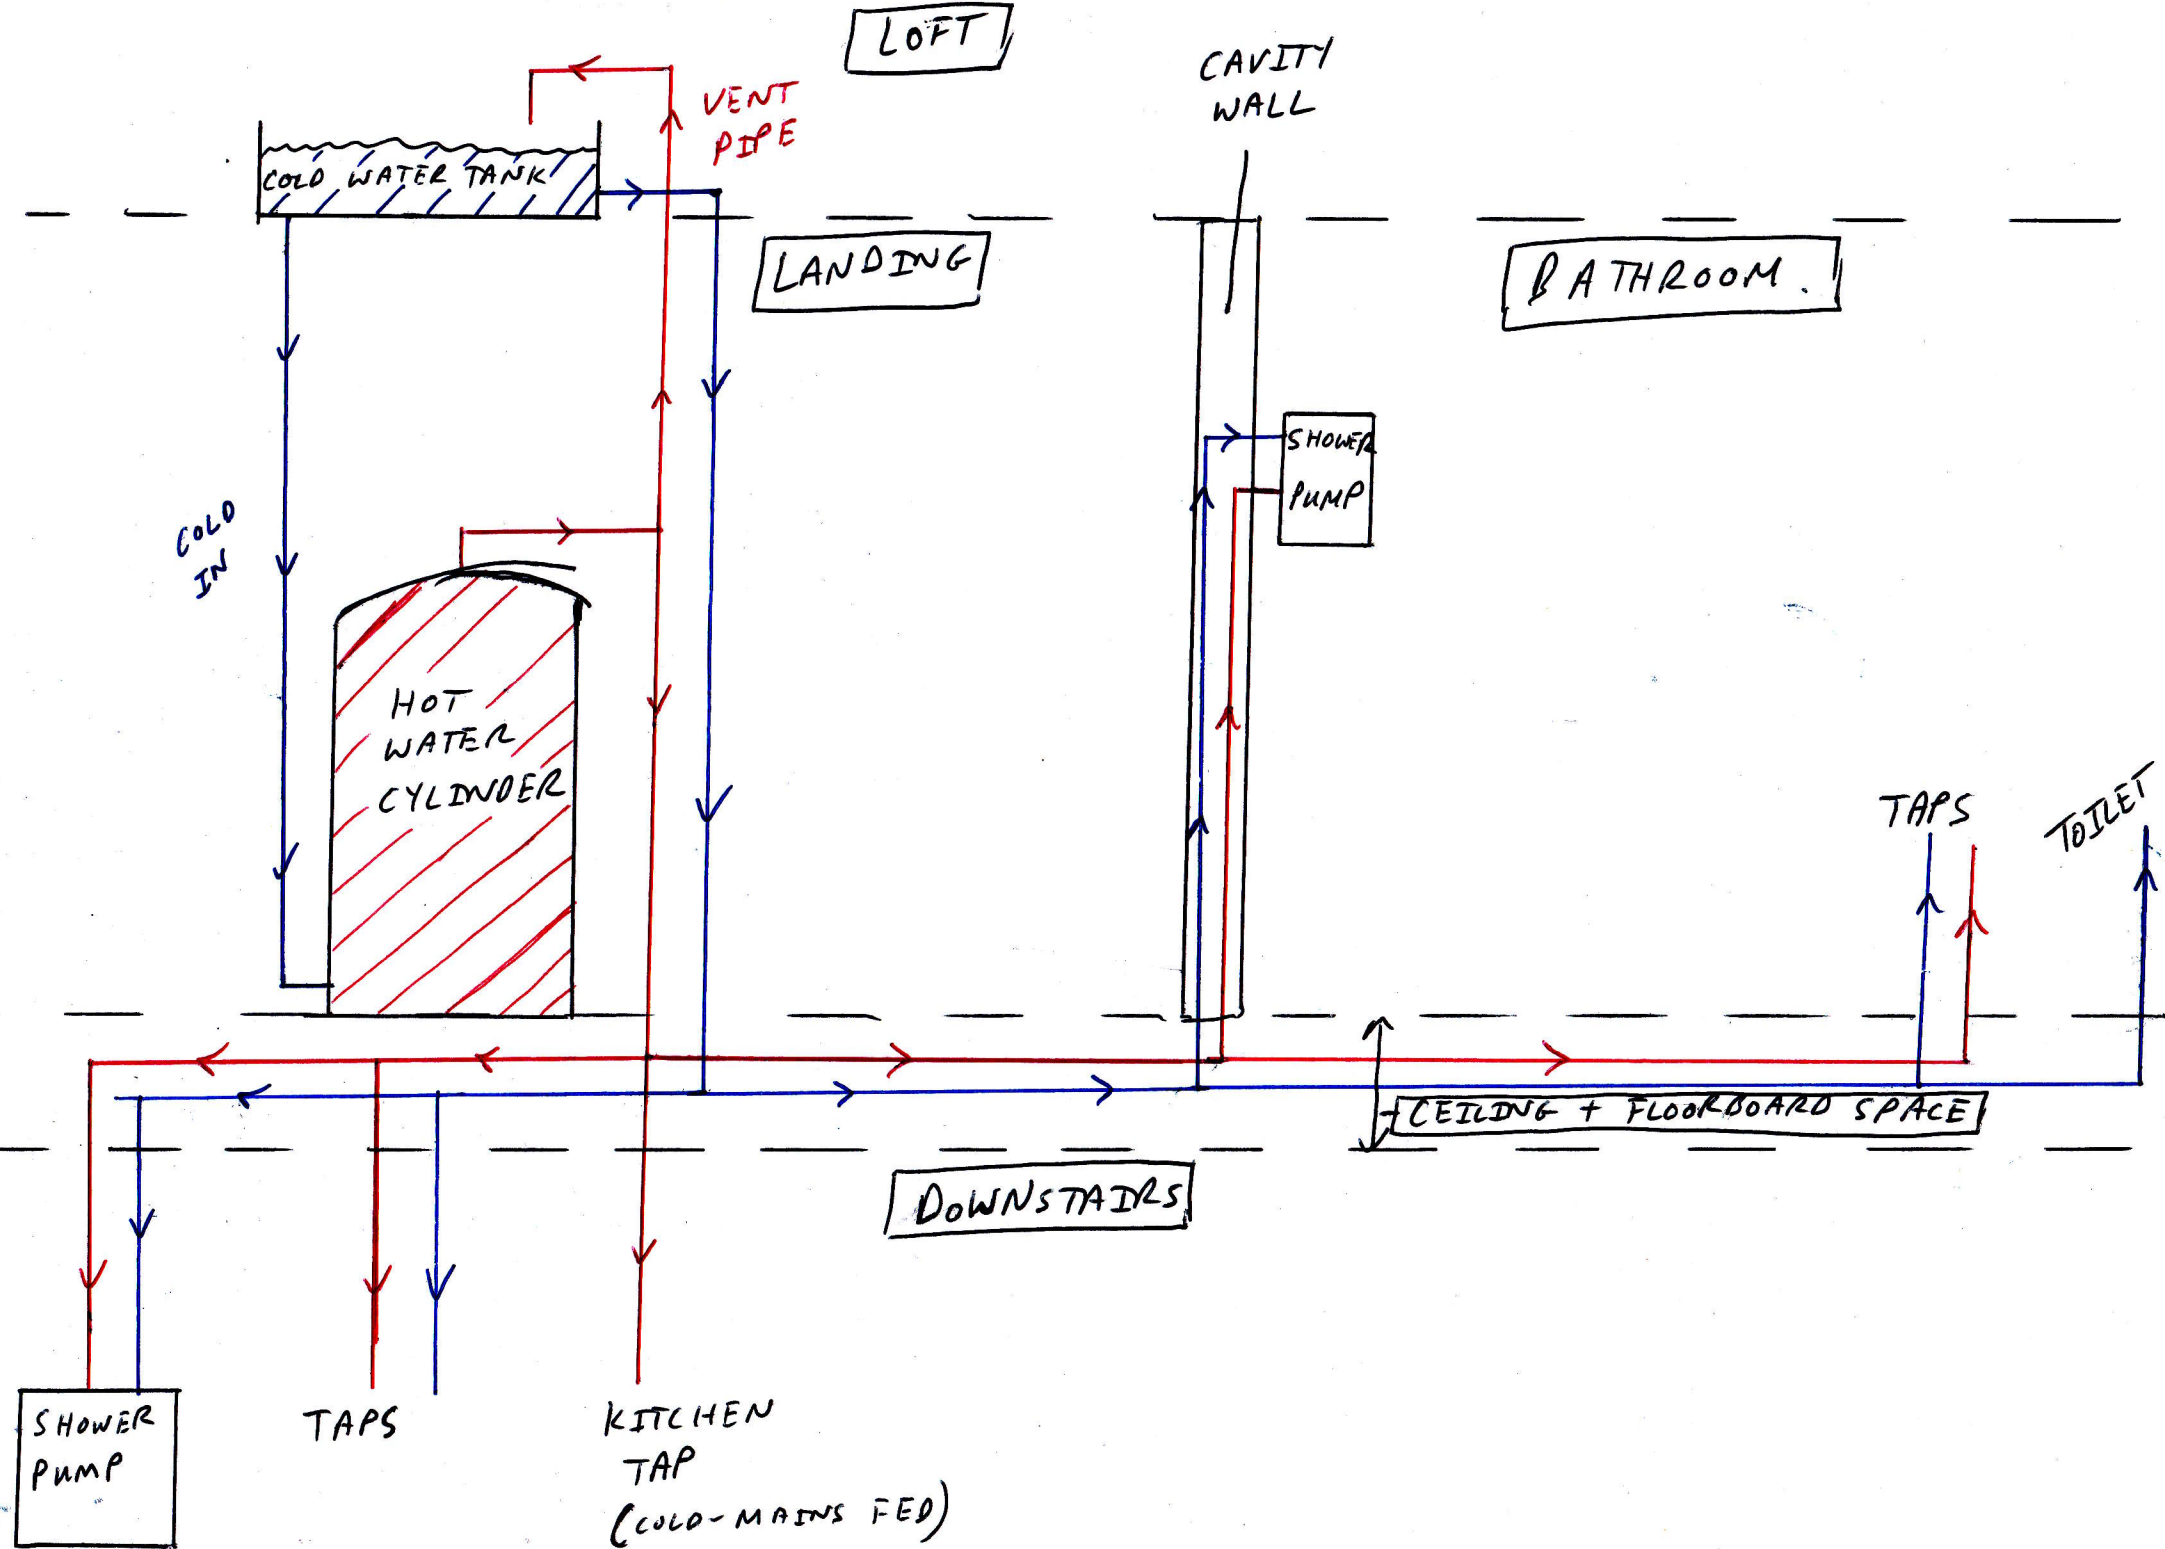 LOFT
CAVITY
WALL
VENT
PIPE
COLD WATER TANK
LANDING
BATHROOM.
SHOWER
PUMP
COLD
IN
HOT
WATER
CYLINDER
TAPS
TOILET
CEILING + FLOORBOARD SPACE
DOWNSTAIRS
SHOWER
PUMP
TAPS
KITCHEN
TAP
(COLD-MAINS FED)